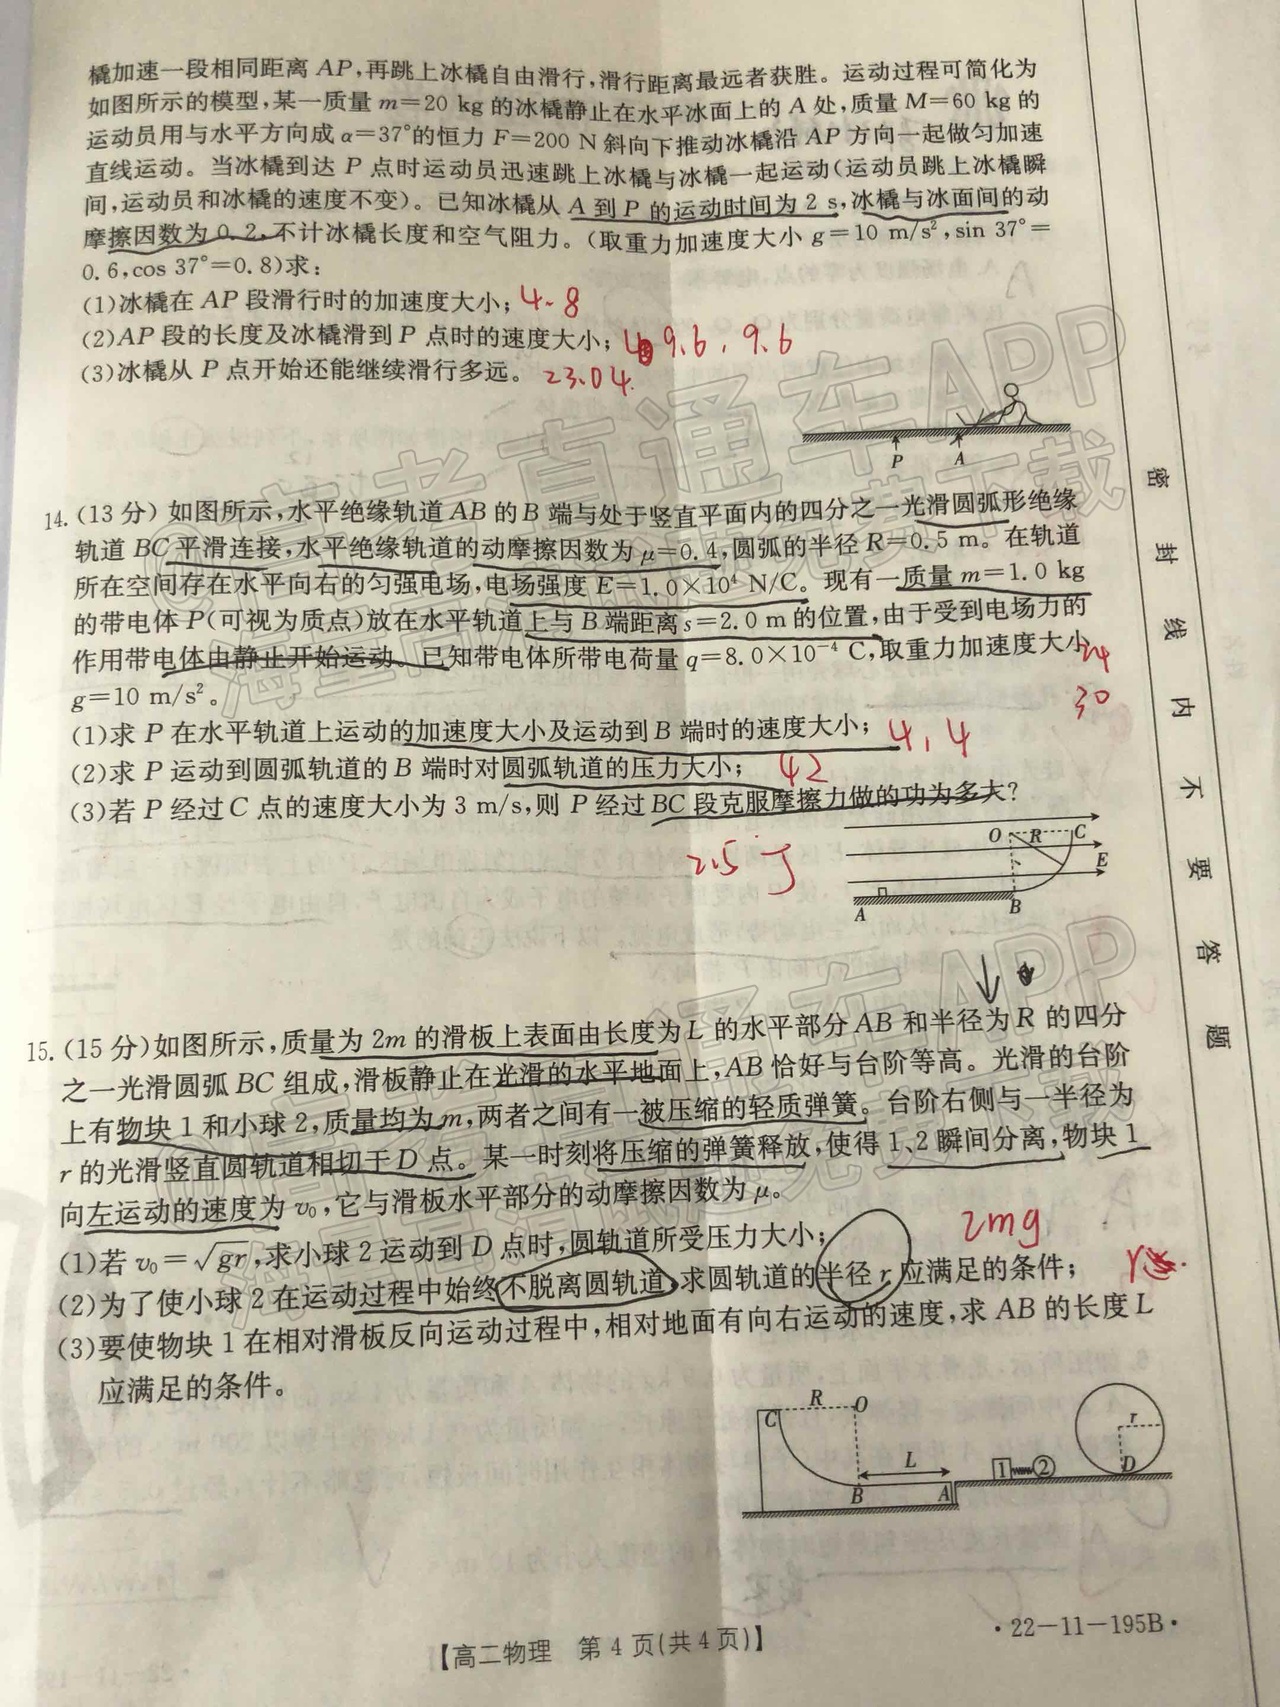 橇加速一段相同距离 AP,再跳上冰橇自由滑行,滑行距离最远者获胜。运动过程可简化为
如图所示的模型,某一质量 m=20 kg 的冰橇静止在水平冰面上的 A 处,质量 M=60 kg 的
运动员用与水平方向成 α=37°的恒力 F=200 N 斜向下推动冰橇沿 AP 方向一起做匀加速
直线运动。当冰橇到达 P 点时运动员迅速跳上冰橇与冰橇一起运动(运动员跳上冰橇瞬
间,运动员和冰橇的速度不变)。已知冰橇从 A 到 P 的运动时间为 2 s,冰橇与冰面间的动
摩擦因数为 0.2,不计冰橇长度和空气阻力。(取重力加速度大小 g=10 m/s²,sin 37°=
0.6,cos 37°=0.8)求:
(1)冰橇在 AP 段滑行时的加速度大小; 4.8
(2)AP 段的长度及冰橇滑到 P 点时的速度大小; 9.6, 9.6
(3)冰橇从 P 点开始还能继续滑行多远。 23.04
P A
14. (13 分) 如图所示,水平绝缘轨道 AB 的 B 端与处于竖直平面内的四分之一光滑圆弧形绝缘
轨道 BC 平滑连接,水平绝缘轨道的动摩擦因数为 μ=0.4,圆弧的半径 R=0.5 m。在轨道
所在空间存在水平向右的匀强电场,电场强度 E=1.0×10⁴ N/C。现有一质量 m=1.0 kg
的带电体 P(可视为质点)放在水平轨道上与 B 端距离 s=2.0 m 的位置,由于受到电场力的
作用带电体由静止开始运动。已知带电体所带电荷量 q=8.0×10⁻⁴ C,取重力加速度大小
24
g=10 m/s²。
30
(1)求 P 在水平轨道上运动的加速度大小及运动到 B 端时的速度大小; 4, 4
(2)求 P 运动到圆弧轨道的 B 端时对圆弧轨道的压力大小; 42
(3)若 P 经过 C 点的速度大小为 3 m/s,则 P 经过 BC 段克服摩擦力做的功为多大?
2.5 J
O R C
E
A B
15. (15 分)如图所示,质量为 2m 的滑板上表面由长度为 L 的水平部分 AB 和半径为 R 的四分
之一光滑圆弧 BC 组成,滑板静止在光滑的水平地面上,AB 恰好与台阶等高。光滑的台阶
上有物块 1 和小球 2,质量均为 m,两者之间有一被压缩的轻质弹簧。台阶右侧与一半径为
r 的光滑竖直圆轨道相切于 D 点。某一时刻将压缩的弹簧释放,使得 1、2 瞬间分离,物块 1
向左运动的速度为 v₀,它与滑板水平部分的动摩擦因数为 μ。
(1)若 v₀=√gr,求小球 2 运动到 D 点时,圆轨道所受压力大小; 2mg
(2)为了使小球 2 在运动过程中始终不脱离圆轨道,求圆轨道的半径 r 应满足的条件;
(3)要使物块 1 在相对滑板反向运动过程中,相对地面有向右运动的速度,求 AB 的长度 L
应满足的条件。
C R O
L
B A 1 2
r
D
【高二物理 第 4 页(共 4 页)】
·22-11-195B·
密封线内不要答题
@高考直通车APP
海量高清试题免费下载
@高考直通车APP
海量高清试题免费下载